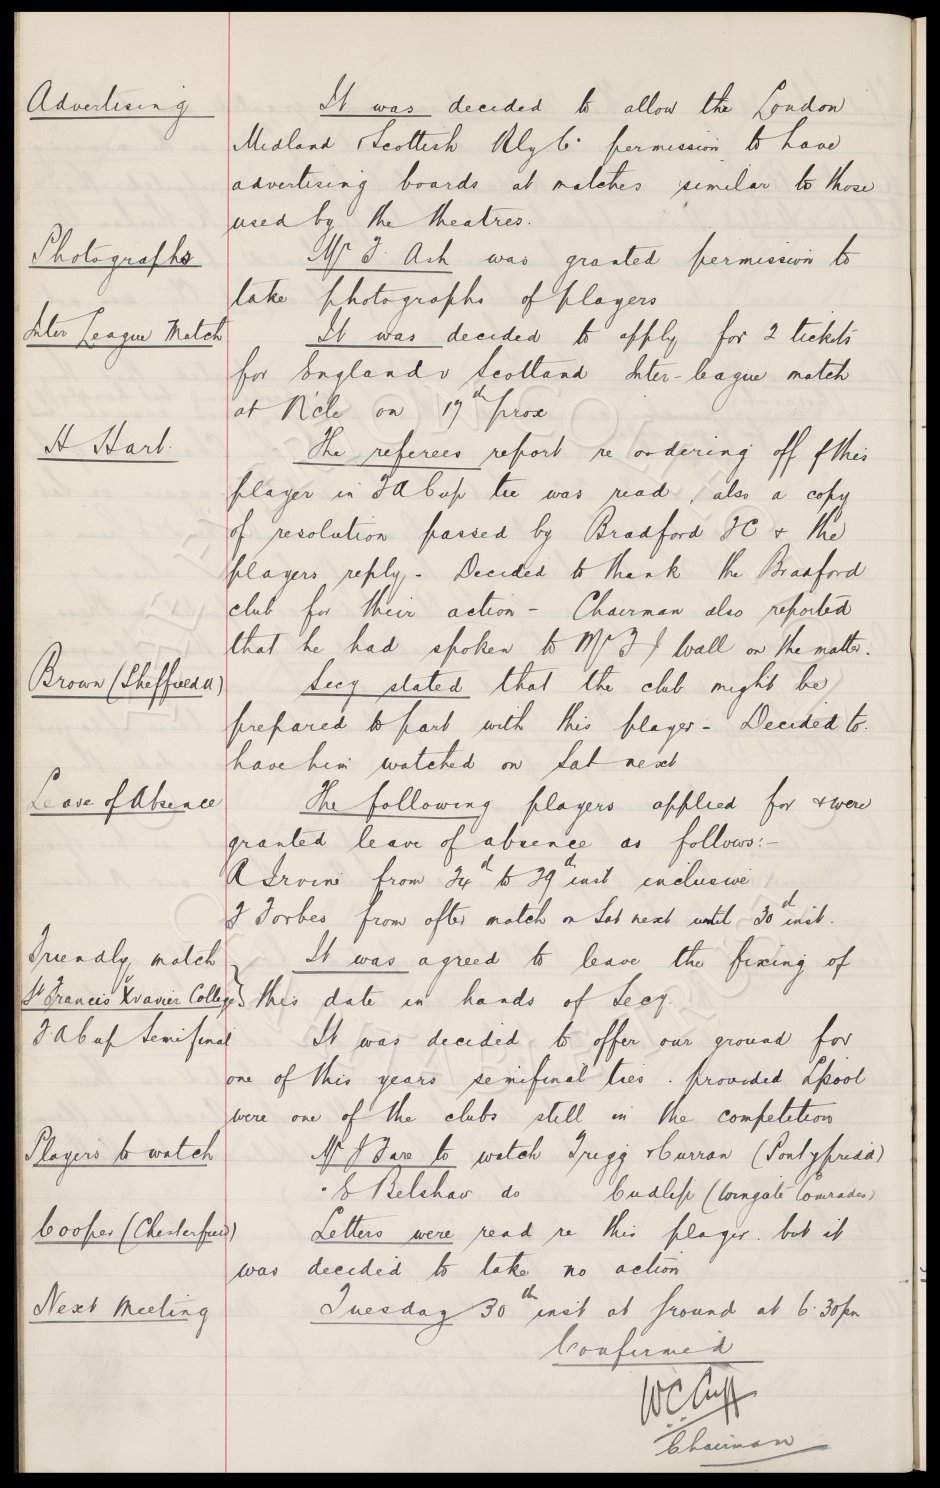 Advertising It was decided to allow the London
Midland & Scottish Rly Co permission to have
advertising boards at matches similar to those
used by the theatres.
Photographs Mr F. Ash was granted permission to
take photographs of players
Inter League Match It was decided to apply for 2 tickets
for England v Scotland Inter-league match
at N'cle on 17th prox
H Hart. The referees report re ordering off of this
player in FA Cup tie was read, also a copy
of resolution passed by Bradford FC & the
players reply - Decided to thank the Bradford
club for their action - Chairman also reported
that he had spoken to Mr F J Wall on the matter.
Brown (Sheffield U) Secy stated that the club might be
prepared to part with this player - Decided to
have him watched on Sat next
Leave of Absence The following players applied for & were
granted leave of absence as follows:-
R Irvine from 24th to 29th inst inclusive
F Forbes from after match on Sat next until 30th inst.
Friendly match It was agreed to leave the fixing of
St Francis Xvavier College } this date in hands of Secy.
F.A Cup Semi final It was decided to offer our ground for
one of this years semifinal ties. provided Lpool
were one of the clubs still in the competition
Players to watch Mr J Fare to watch Trigg & Curran (Pontypridd)
" E Belshaw do Cudlip (Wingate Comrades)
Cooper (Chesterfield) Letters were read re this player. but it
was decided to take no action
Next Meeting Tuesday 30th inst at Ground at 6.30pm
Confirmed
W C Cuff
Chairman